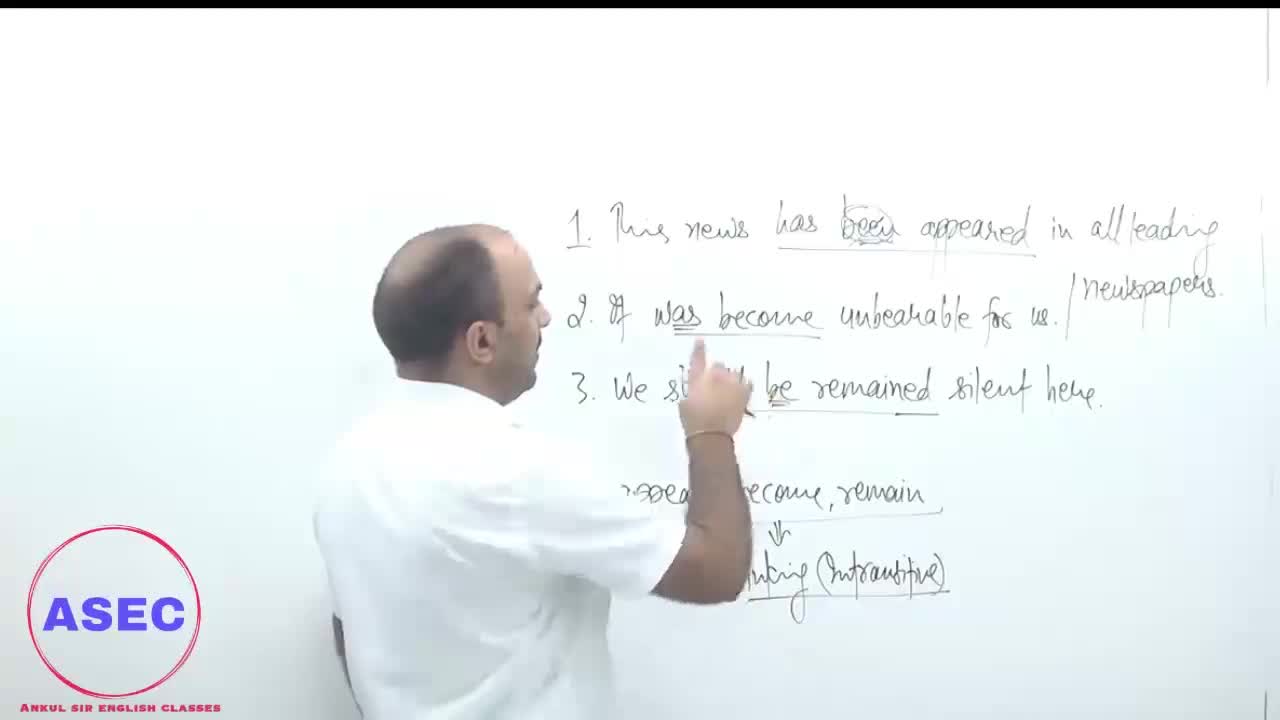 1. This news has been appeared in all leading
/newspapers.
2. It was become unbearable for us.
3. We be remained silent here.
become, remain
⇓
(Intransitive)
ASEC
ANKUL SIR ENGLISH CLASSES